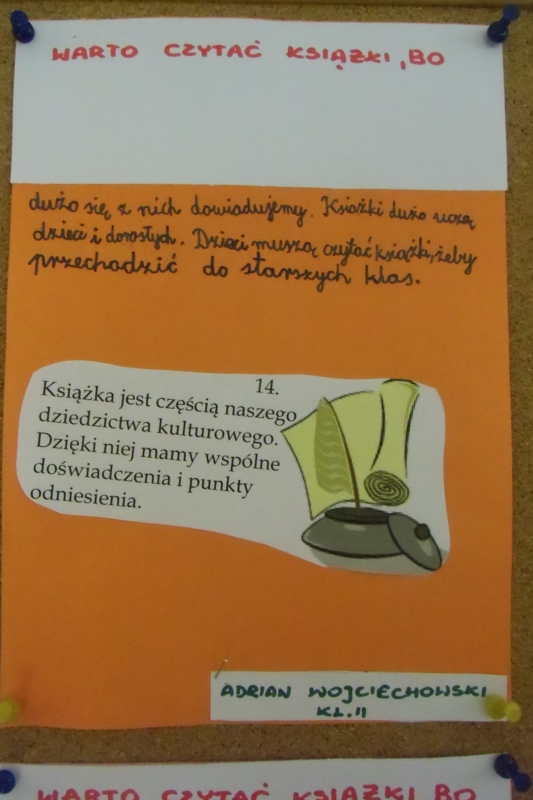 WARTO CZYTAĆ KSIĄŻKI, BO
dużo się z nich dowiadujemy. Książki dużo uczą
dzieci i dorosłych. Dzieci muszą czytać książki, żeby
przechodzić do starszych klas.
14.
Książka jest częścią naszego
dziedzictwa kulturowego.
Dzięki niej mamy wspólne
doświadczenia i punkty
odniesienia.
ADRIAN WOJCIECHOWSKI
KL.II
WARTO CZYTAĆ KSIĄŻKI, BO